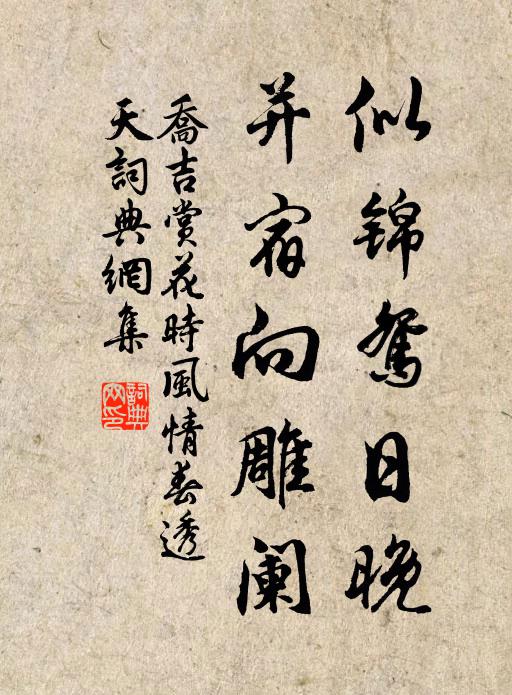 似锦鸳日晚
并宿向雕阑
喬吉賞花時風情春透
天詞典網集
詞典
网印